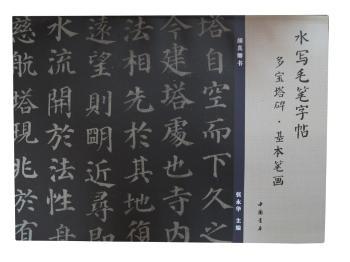 水写毛笔字帖
多宝塔碑·基本笔画
中国书店
颜真卿书
张永华 主编
塔自空而下久
今建塔處也寺内
法相先於其地復
遠望則眀近尋即
水流開於法性舟
慈航塔現兆於有